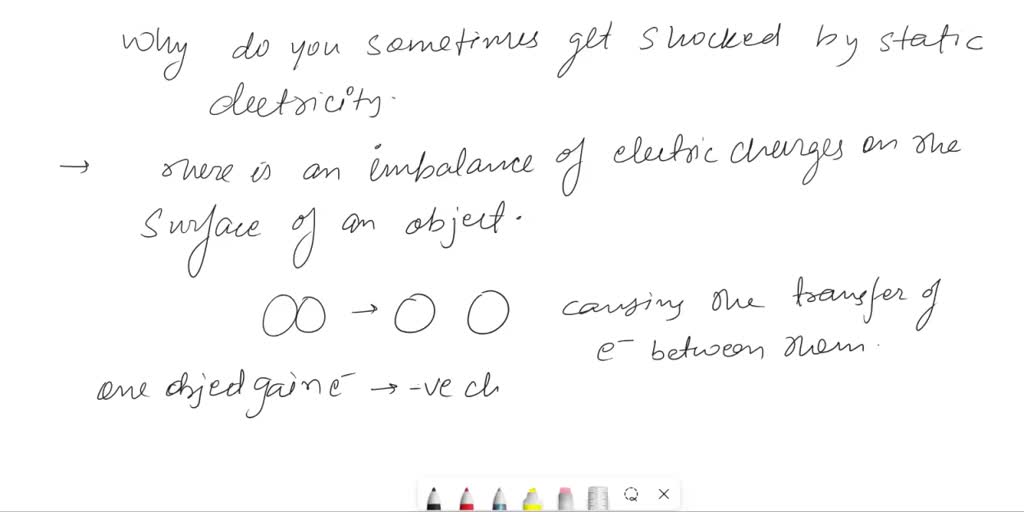 Why do you sometimes get shocked by static
electricity.
→ There is an imbalance of electric charges on the
surface of an object.
→ causing the transfer of
e⁻ between them.
one object gain e⁻ → -ve ch